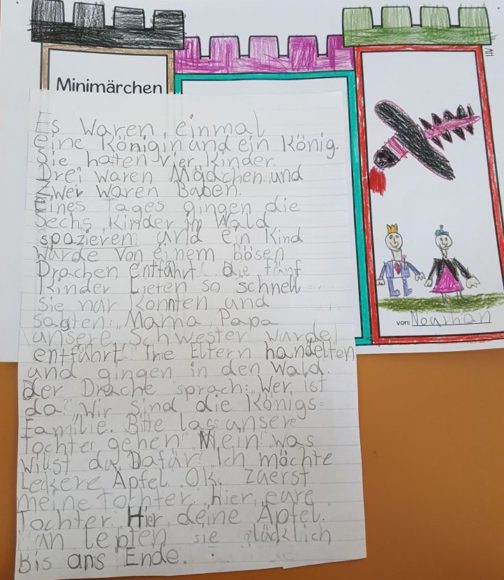 Minimärchen
Es Waren einmal
eine Königin und ein König.
Sie haten vier kinder
Drei waren Mädchen und
Zwei Waren Buben.
Eines Tages gingen die
sechs kinder in Wald
spazieren und ein Kind
wurde von einem bösen
Drachen entfährt die fünf
Kinder Lieten so schnell
sie nur konnten und
sagten: Mama, Papa
unsere schwester wurde
entführt The Eltern handelten
und gingen in den Wald.
der Drache sprach: Wer ist
da Wir sind die Königs-
familie. Bitte lass unsere
tochter gehen Mein was
wilst du Dafür Ich möchte
Lekere Äpfel Ok. Zuerst
meine tochter. hier eure
Tochter. Hier deine Apfel.
lepten sie glücklich
Bis ans Ende.
von: Nourhan